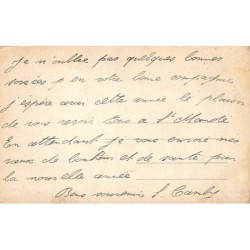 je n'oublie pas quelques bonnes
soirées p en votre bonne compagnie
j'espère avoir cette année le plaisir
de vous revoir tous à St Mandé
En attendant je vous envoie mes
vœux de bonheur et de santé pour
la nouvelle année
Bons souvenirs